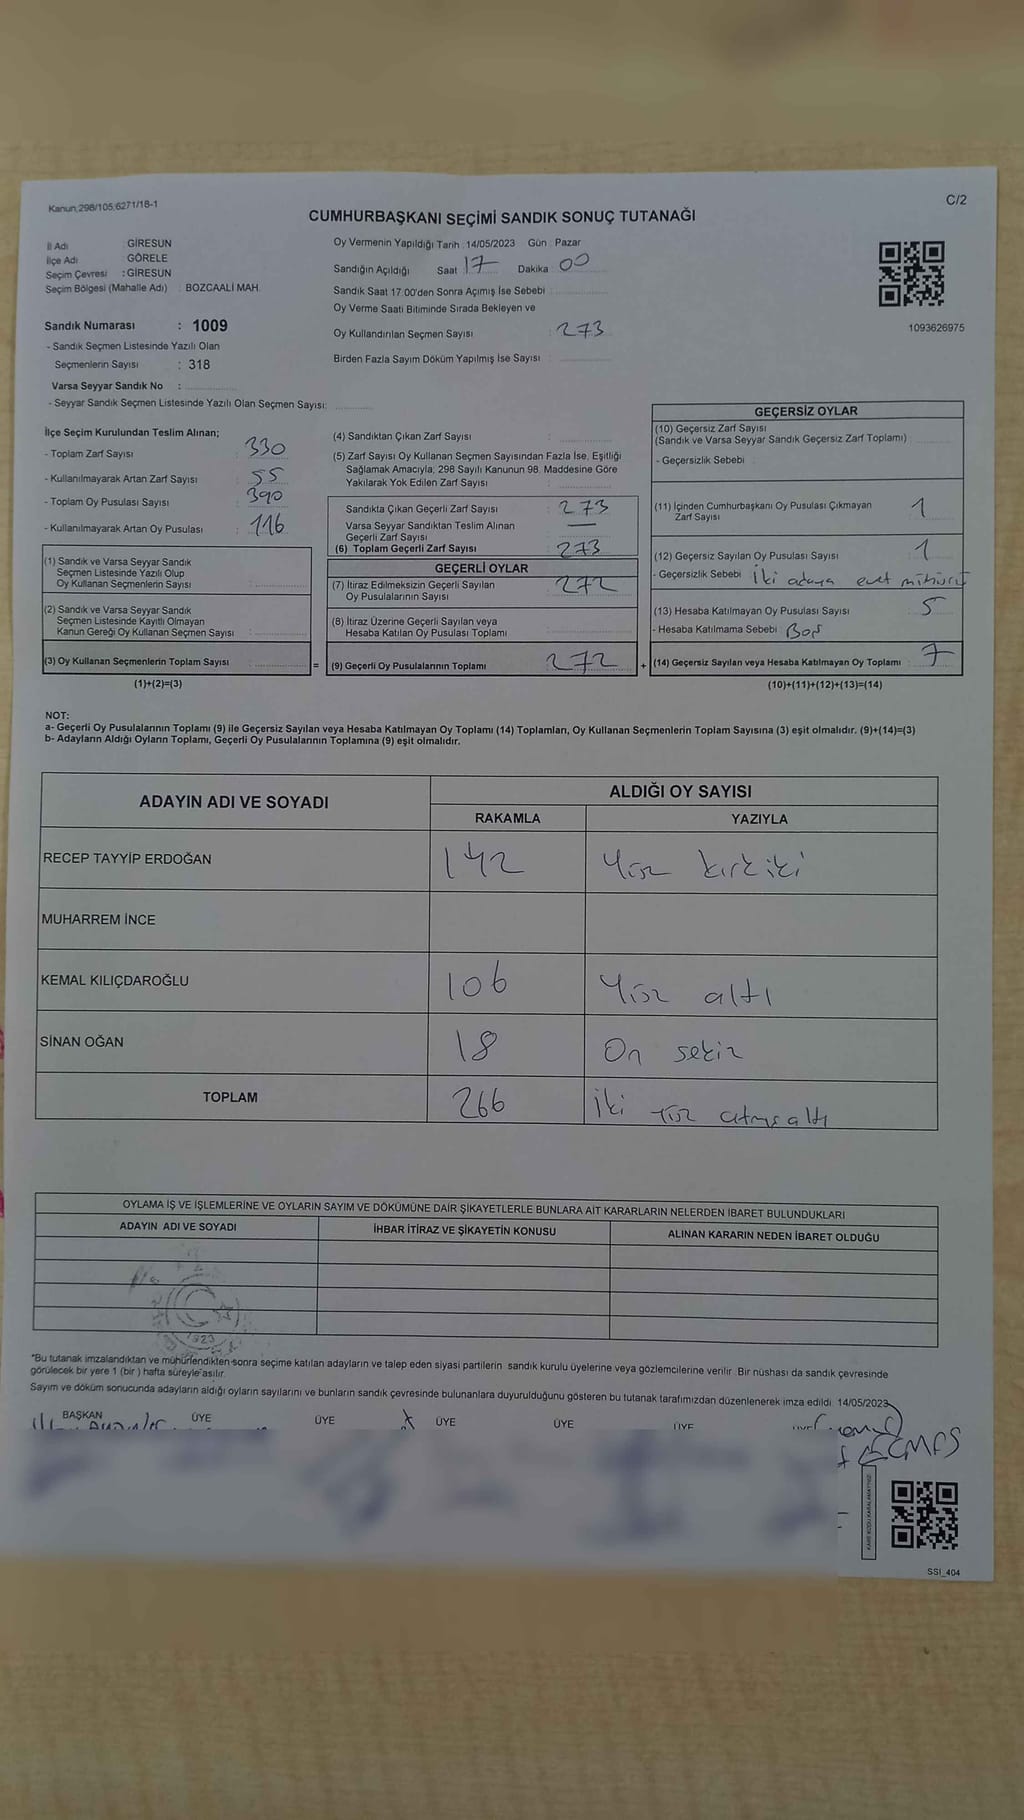 Kanun 298/105 6271/18-1
C/2
CUMHURBAŞKANI SEÇİMİ SANDIK SONUÇ TUTANAĞI
İl Adı : GİRESUN
İlçe Adı : GÖRELE
Seçim Çevresi : GİRESUN
Seçim Bölgesi (Mahalle Adı) : BOZCAALİ MAH.
Sandık Numarası : 1009
- Sandık Seçmen Listesinde Yazılı Olan
Seçmenlerin Sayısı : 318
Varsa Seyyar Sandık No :
- Seyyar Sandık Seçmen Listesinde Yazılı Olan Seçmen Sayısı:
Oy Vermenin Yapıldığı Tarih : 14/05/2023 Gün : Pazar
Sandığın Açıldığı Saat 17 Dakika 00
Sandık Saat 17:00'den Sonra Açımış İse Sebebi
Oy Verme Saati Bitiminde Sırada Bekleyen ve
Oy Kullandırılan Seçmen Sayısı : 273
Birden Fazla Sayım Döküm Yapılmış İse Sayısı :
1093626975
İlçe Seçim Kurulundan Teslim Alınan;
- Toplam Zarf Sayısı : 330
- Kullanılmayarak Artan Zarf Sayısı : 55
- Toplam Oy Pusulası Sayısı : 390
- Kullanılmayarak Artan Oy Pusulası : 116
(1) Sandık ve Varsa Seyyar Sandık
Seçmen Listesinde Yazılı Olup
Oy Kullanan Seçmenlerin Sayısı :
(2) Sandık ve Varsa Seyyar Sandık
Seçmen Listesinde Kayıtlı Olmayan
Kanun Gereği Oy Kullanan Seçmen Sayısı :
(3) Oy Kullanan Seçmenlerin Toplam Sayısı :
(1)+(2)=(3)
=
(4) Sandıktan Çıkan Zarf Sayısı :
(5) Zarf Sayısı Oy Kullanan Seçmen Sayısından Fazla İse, Eşitliği
Sağlamak Amacıyla, 298 Sayılı Kanunun 98. Maddesine Göre
Yakılarak Yok Edilen Zarf Sayısı :
Sandıkta Çıkan Geçerli Zarf Sayısı : 273
Varsa Seyyar Sandıktan Teslim Alınan
Geçerli Zarf Sayısı : —
(6) Toplam Geçerli Zarf Sayısı : 273
GEÇERLİ OYLAR
(7) İtiraz Edilmeksizin Geçerli Sayılan
Oy Pusulalarının Sayısı : 272
(8) İtiraz Üzerine Geçerli Sayılan veya
Hesaba Katılan Oy Pusulası Toplamı :
(9) Geçerli Oy Pusulalarının Toplamı : 272
+
GEÇERSİZ OYLAR
(10) Geçersiz Zarf Sayısı
(Sandık ve Varsa Seyyar Sandık Geçersiz Zarf Toplamı) :
- Geçersizlik Sebebi :
(11) İçinden Cumhurbaşkanı Oy Pusulası Çıkmayan
Zarf Sayısı : 1
(12) Geçersiz Sayılan Oy Pusulası Sayısı : 1
- Geçersizlik Sebebi İki adaya evet mührü
(13) Hesaba Katılmayan Oy Pusulası Sayısı : 5
- Hesaba Katılmama Sebebi : Boş
(14) Geçersiz Sayılan veya Hesaba Katılmayan Oy Toplamı : 7
(10)+(11)+(12)+(13)=(14)
NOT:
a- Geçerli Oy Pusulalarının Toplamı (9) ile Geçersiz Sayılan veya Hesaba Katılmayan Oy Toplamı (14) Toplamları, Oy Kullanan Seçmenlerin Toplam Sayısına (3) eşit olmalıdır. (9)+(14)=(3)
b- Adayların Aldığı Oyların Toplamı, Geçerli Oy Pusulalarının Toplamına (9) eşit olmalıdır.
ADAYIN ADI VE SOYADI
ALDIĞI OY SAYISI
RAKAMLA YAZIYLA
RECEP TAYYİP ERDOĞAN 142 Yüz kırk iki
MUHARREM İNCE
KEMAL KILIÇDAROĞLU 106 Yüz altı
SİNAN OĞAN 18 On sekiz
TOPLAM 266 İki yüz atmış altı
OYLAMA İŞ VE İŞLEMLERİNE VE OYLARIN SAYIM VE DÖKÜMÜNE DAİR ŞİKAYETLERLE BUNLARA AİT KARARLARIN NELERDEN İBARET BULUNDUKLARI
ADAYIN ADI VE SOYADI İHBAR İTİRAZ VE ŞİKAYETİN KONUSU ALINAN KARARIN NEDEN İBARET OLDUĞU
1923
*Bu tutanak imzalandıktan ve mühürlendikten sonra seçime katılan adayların ve talep eden siyasi partilerin sandık kurulu üyelerine veya gözlemcilerine verilir. Bir nüshası da sandık çevresinde
görülecek bir yere 1 (bir) hafta süreyle asılır.
Sayım ve döküm sonucunda adayların aldığı oyların sayılarını ve bunların sandık çevresinde bulunanlara duyurulduğunu gösteren bu tutanak tarafımızdan düzenlenerek imza edildi. 14/05/2023
BAŞKAN ÜYE ÜYE ÜYE ÜYE ÜYE
SSI_404